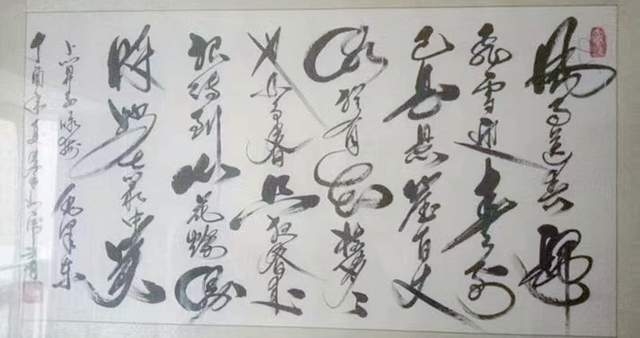 风雨送春归
飞雪迎春到
已是悬崖百丈
冰犹有花枝俏俏
也不争春只把春来
报待到山花烂漫
时她在丛中笑
卜算子咏梅 毛泽东
丁酉年夏